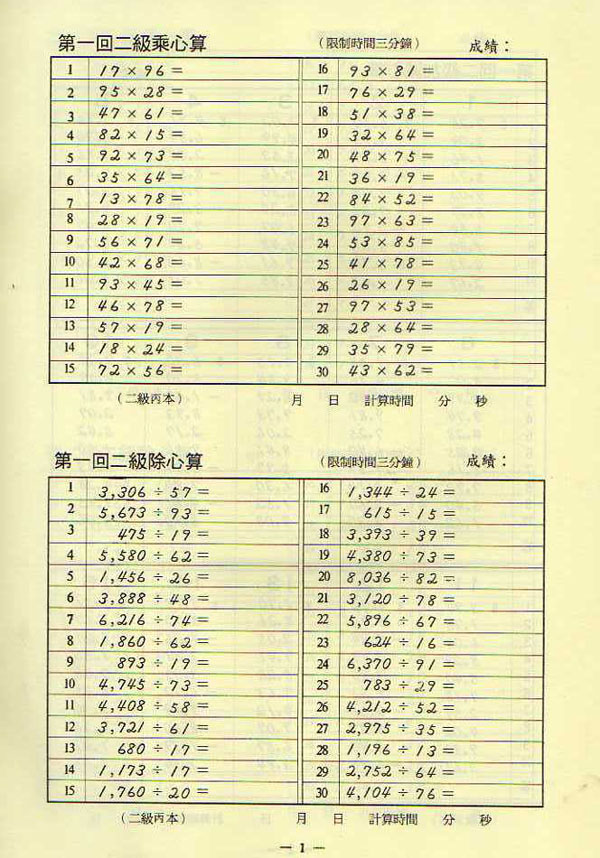 第一回二級乘心算 (限制時間三分鐘) 成績：
1 17 × 96 = 16 93 × 81 =
2 95 × 28 = 17 76 × 29 =
3 47 × 61 = 18 51 × 38 =
4 82 × 15 = 19 32 × 64 =
5 92 × 73 = 20 48 × 75 =
6 35 × 64 = 21 36 × 19 =
7 13 × 78 = 22 84 × 52 =
8 28 × 19 = 23 97 × 63 =
9 56 × 71 = 24 53 × 85 =
10 42 × 68 = 25 41 × 78 =
11 93 × 45 = 26 26 × 19 =
12 46 × 78 = 27 97 × 53 =
13 57 × 19 = 28 28 × 64 =
14 18 × 24 = 29 35 × 79 =
15 72 × 56 = 30 43 × 62 =
(二級丙本) 月 日 計算時間 分 秒
第一回二級除心算 (限制時間三分鐘) 成績：
1 3,306 ÷ 57 = 16 1,344 ÷ 24 =
2 5,673 ÷ 93 = 17 615 ÷ 15 =
3 475 ÷ 19 = 18 3,393 ÷ 39 =
4 5,580 ÷ 62 = 19 4,380 ÷ 73 =
5 1,456 ÷ 26 = 20 8,036 ÷ 82 =
6 3,888 ÷ 48 = 21 3,120 ÷ 78 =
7 6,216 ÷ 74 = 22 5,896 ÷ 67 =
8 1,860 ÷ 62 = 23 624 ÷ 16 =
9 893 ÷ 19 = 24 6,370 ÷ 91 =
10 4,745 ÷ 73 = 25 783 ÷ 29 =
11 4,408 ÷ 58 = 26 4,212 ÷ 52 =
12 3,721 ÷ 61 = 27 2,975 ÷ 35 =
13 680 ÷ 17 = 28 1,196 ÷ 13 =
14 1,173 ÷ 17 = 29 2,752 ÷ 64 =
15 1,760 ÷ 20 = 30 4,104 ÷ 76 =
(二級丙本) 月 日 計算時間 分 秒
— 1 —